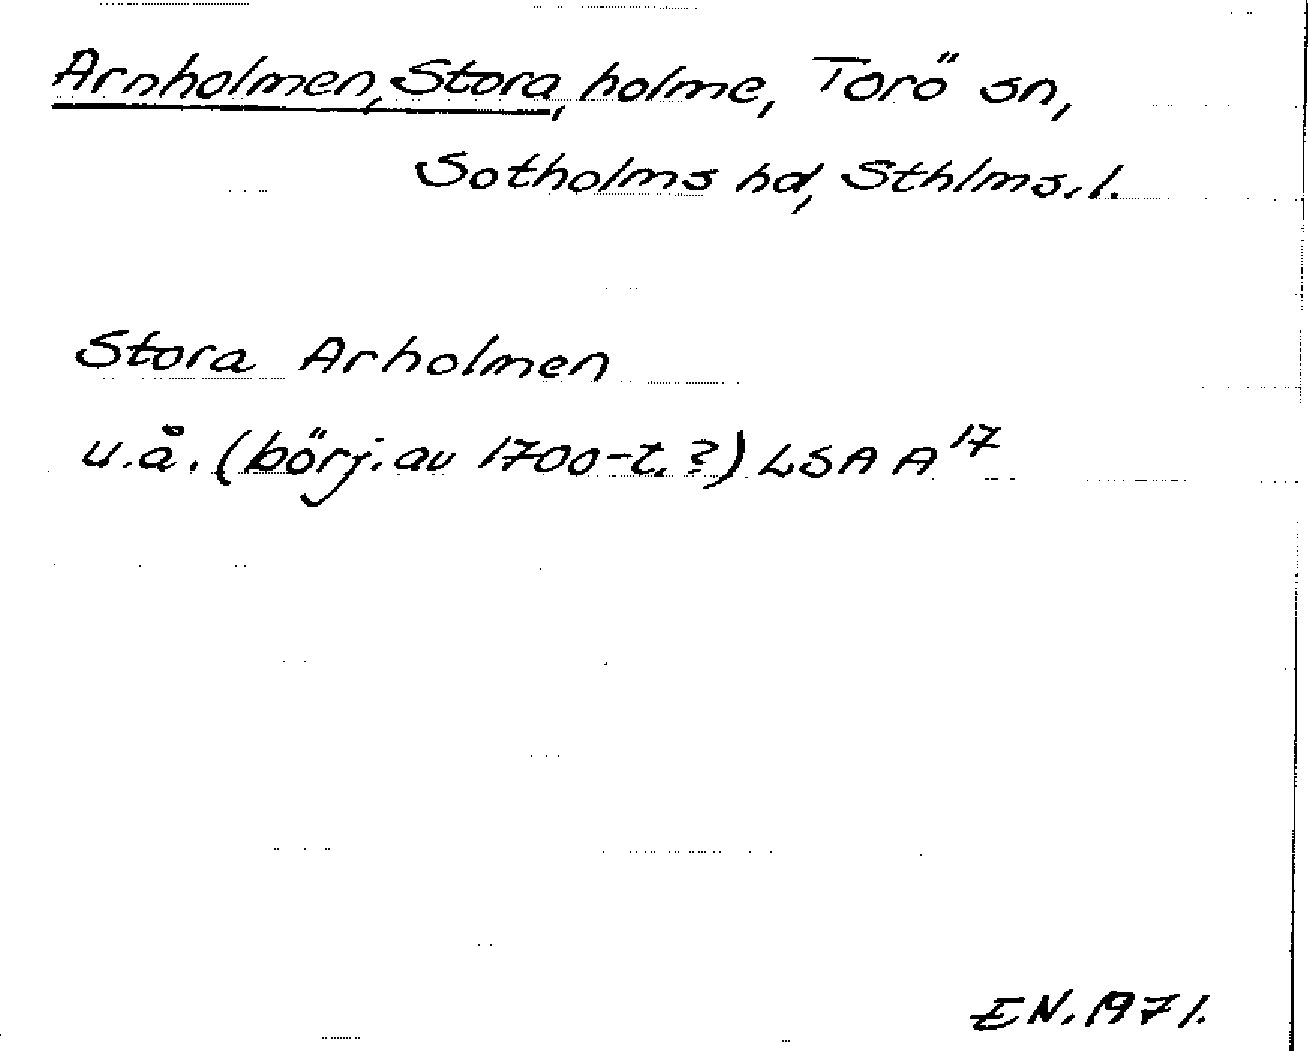 Arnholmen, Stora, holme, Torö sn,
Sotholms hd, Sthlms. l.
Stora Arholmen
u.å. (börj. av 1700-t. ?) LSA A 17
EN. 1971.